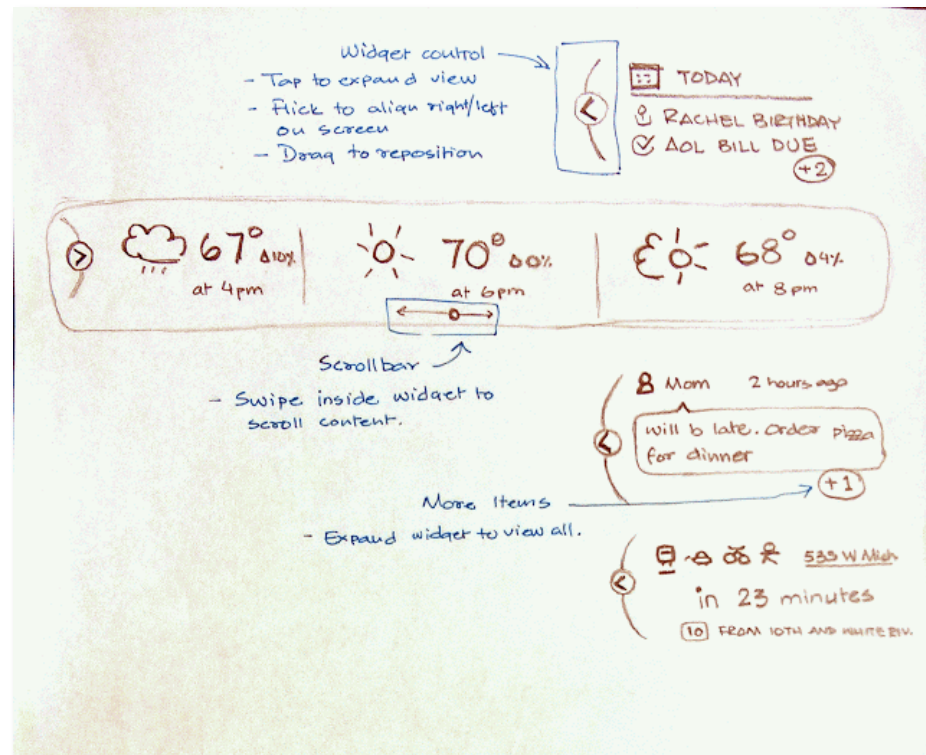 Widget control
- Tap to expand view
- Flick to align right/left
on screen
- Drag to reposition
TODAY
RACHEL BIRTHDAY
AOL BILL DUE
+2
67° 10%
at 4pm
70° 0%
at 6pm
68° 4%
at 8pm
Scrollbar
- Swipe inside widget to
scroll content.
Mom 2 hours ago
will b late. Order pizza
for dinner
+1
More Items
- Expand widget to view all.
535 W Mich
in 23 minutes
10 FROM 10TH AND WHITE RIV.